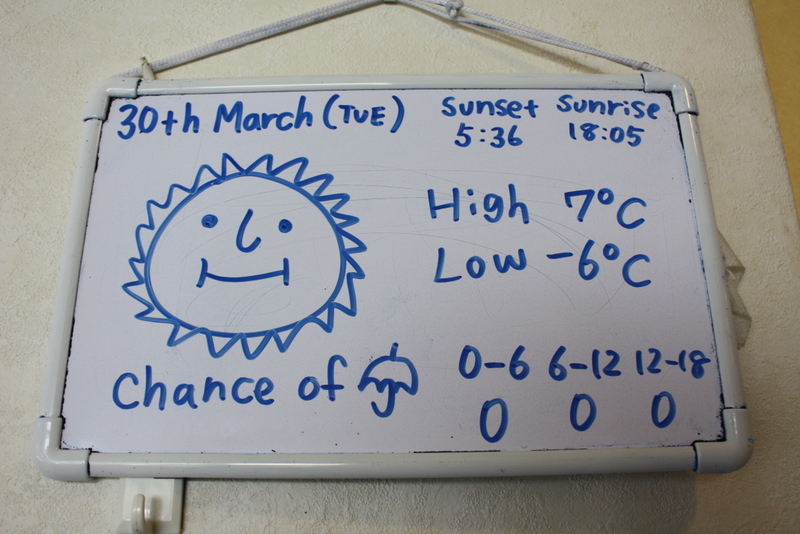 30th March (TUE) Sunset Sunrise
5:36 18:05
High 7°C
Low -6°C
Chance of 0-6 6-12 12-18
0 0 0